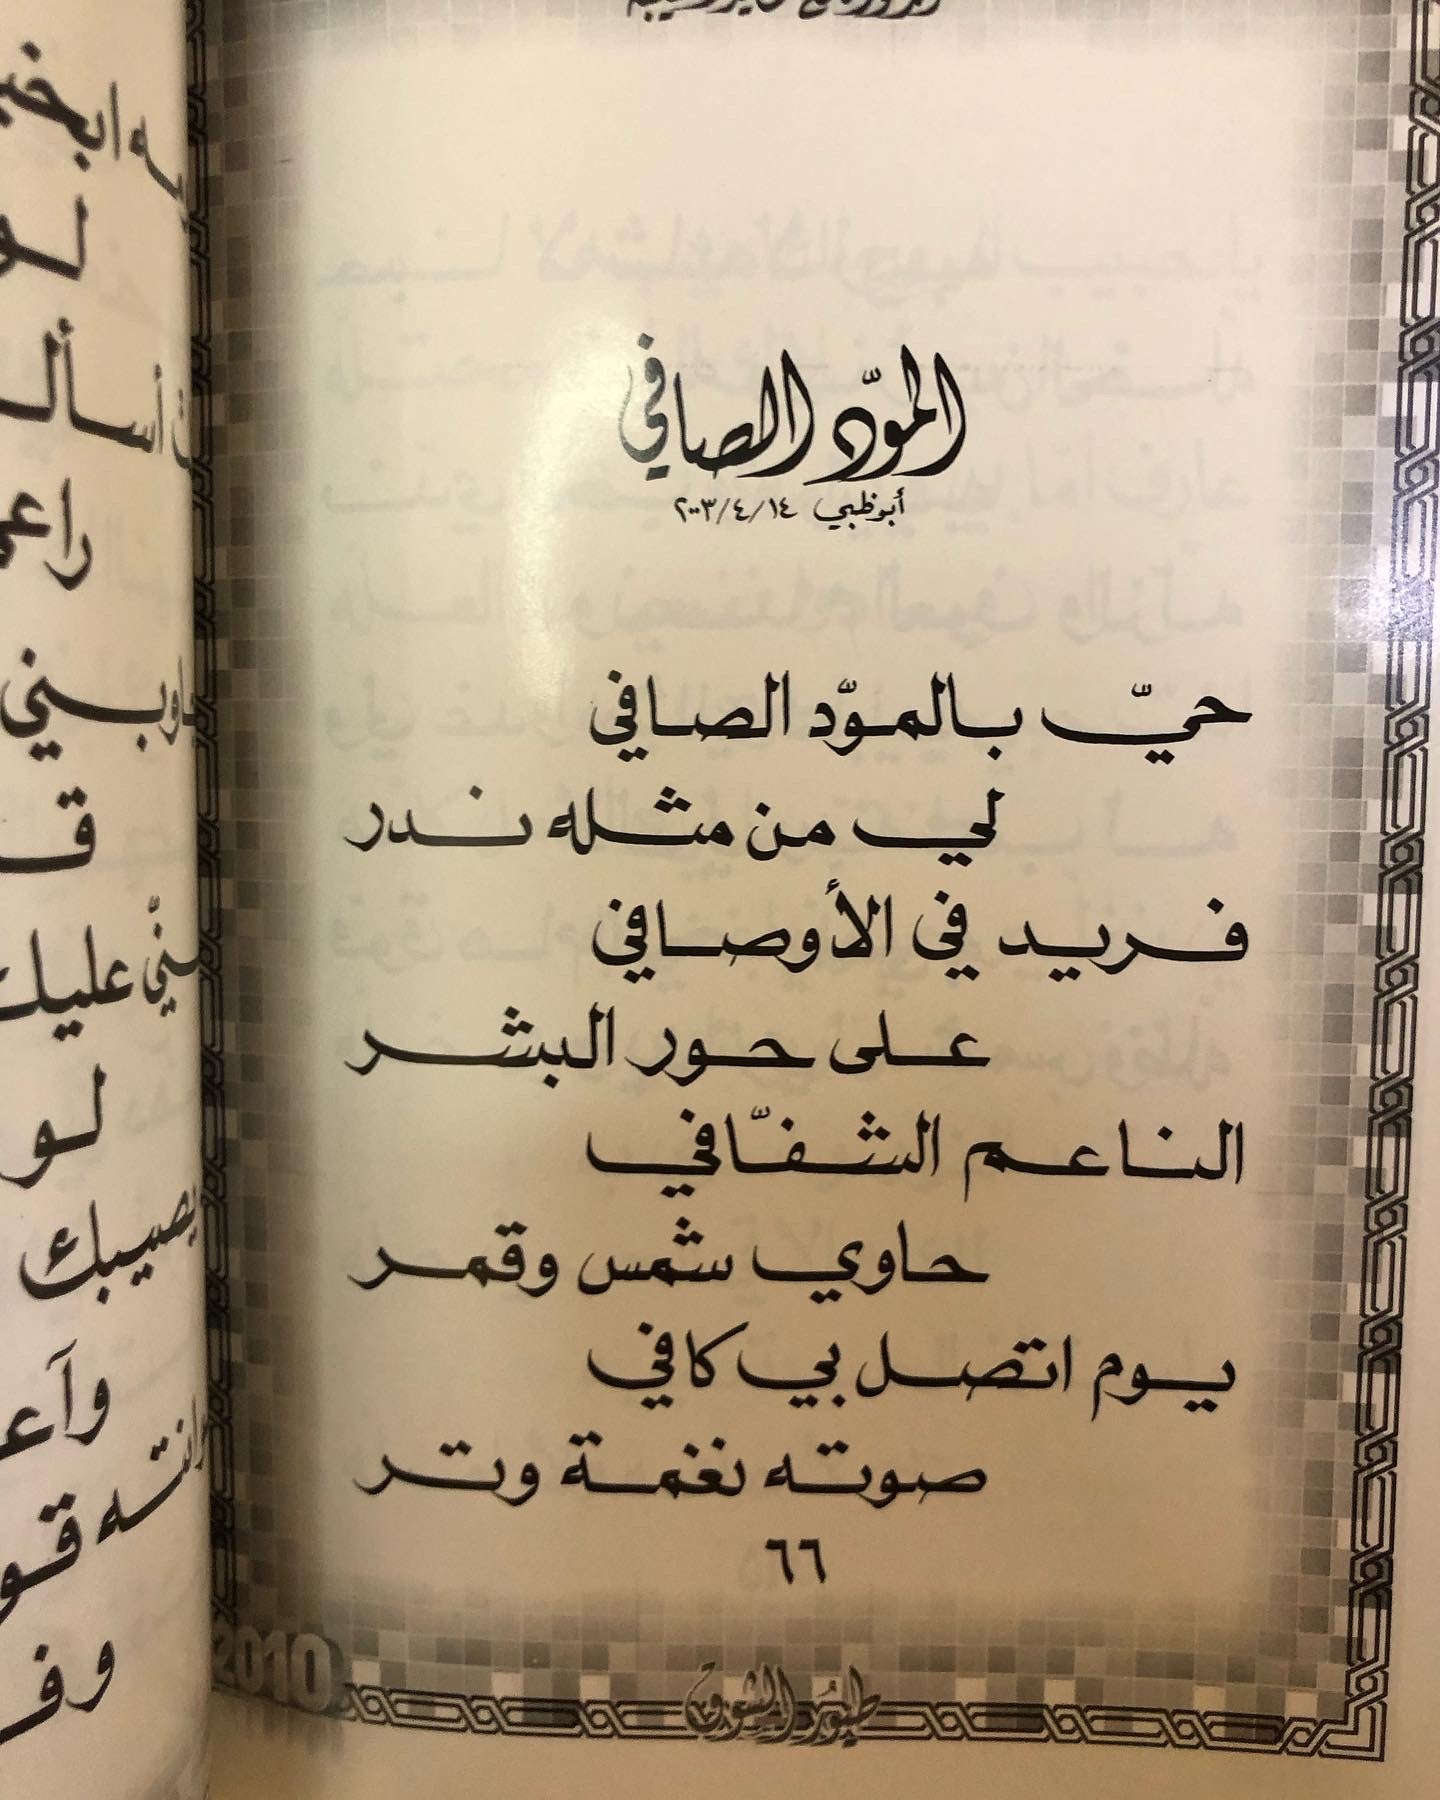 المودّ الصافي
أبوظبي ٢٠٠٣/٤/١٤
حيّ بالمودّ الصافي
لي من مثله ندر
فريد في الأوصافي
على حور البشر
الناعم الشفّافي
حاوي شمس وقمر
يوم اتصل بي كافي
صوته نغمة وتر
٦٦
2010
طيور الشوق
لو
أسأل
راعـ
اوبني
قـ
ـنّي عليك
لو
يصيبك
وآعـ
وانته قو
وفـ